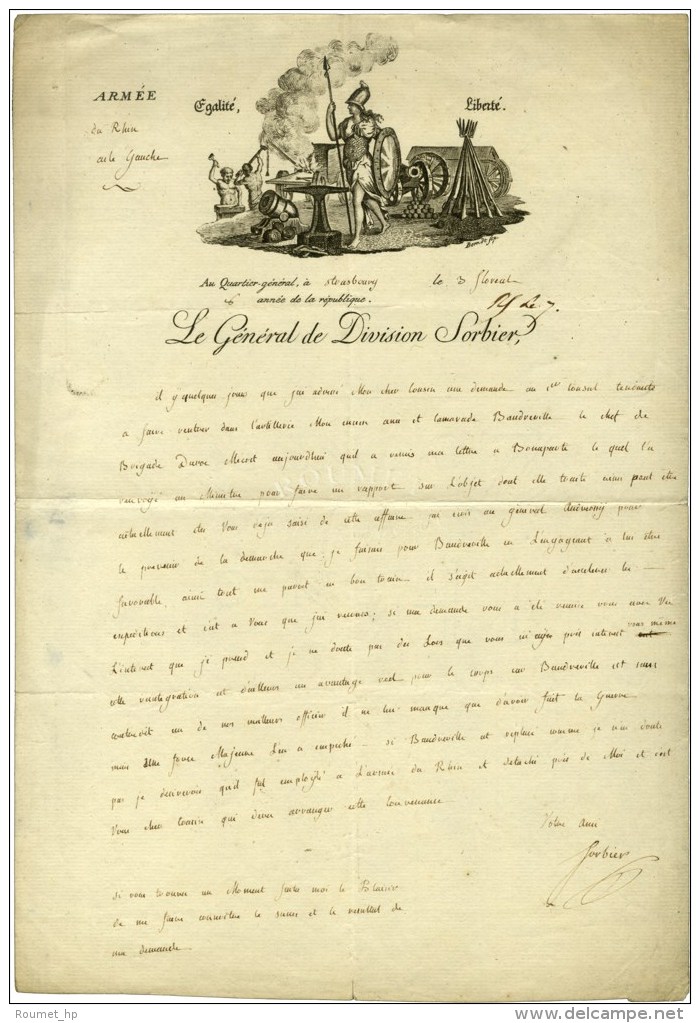 ARMÉE
du Rhin
aile Gauche
Egalité,
Liberté.
Au Quartier-général, à Strasbourg le 3 floreal
année de la république.
Le Général de Division Sorbier,
il y quelques jours que j'ai adressé Mon cher Cousin une demande au 1er Consul tendante
a faire rentrer dans l'artillerie Mon ancien ami et Camarade Baudreville le chef de
Brigade M'ecrit aujourdhui quil a remis ma lettre a Bonaparte le quel l'a
renvoyé au Ministre pour faire un rapport sur l'objet dont elle traite
actuellement Vous deja saisi de cette affaire j'ai ecris au général pour
le prevenir de la demarche que je faisais pour Baudreville en L'engageant a lui être
favorable, ainsi tout me parait en bon train il s'agit actuellement d'accelerer les
expeditions et c'est a Vous que j'ai recours; si ma demande vous a été remise vous avez Vu
L'interest que je prend et je ne doute pas des Lors que vous n'ayez pris interest vous meme
cette reintegration est d'ailleurs un avantage reel pour le corps car Baudreville est sans
contredit un de nos meilleurs officiers il ne lui manque que d'avoir fait la Guerre
mais une force Majeure L'en a empeché - si Baudreville est replacé comme je n'en doute
pas je desirerois qu'il fut employé a L'armée du Rhin et detaché près de Moi et c'est
Vous cher cousin qui devez arranger cette convenance
Votre ami
Sorbier
si vous trouvez un Moment faites moi le Plaisir
de me faire connaître le succes et le resultat de
ma demande
Roumet_hp
www.delcampe.net